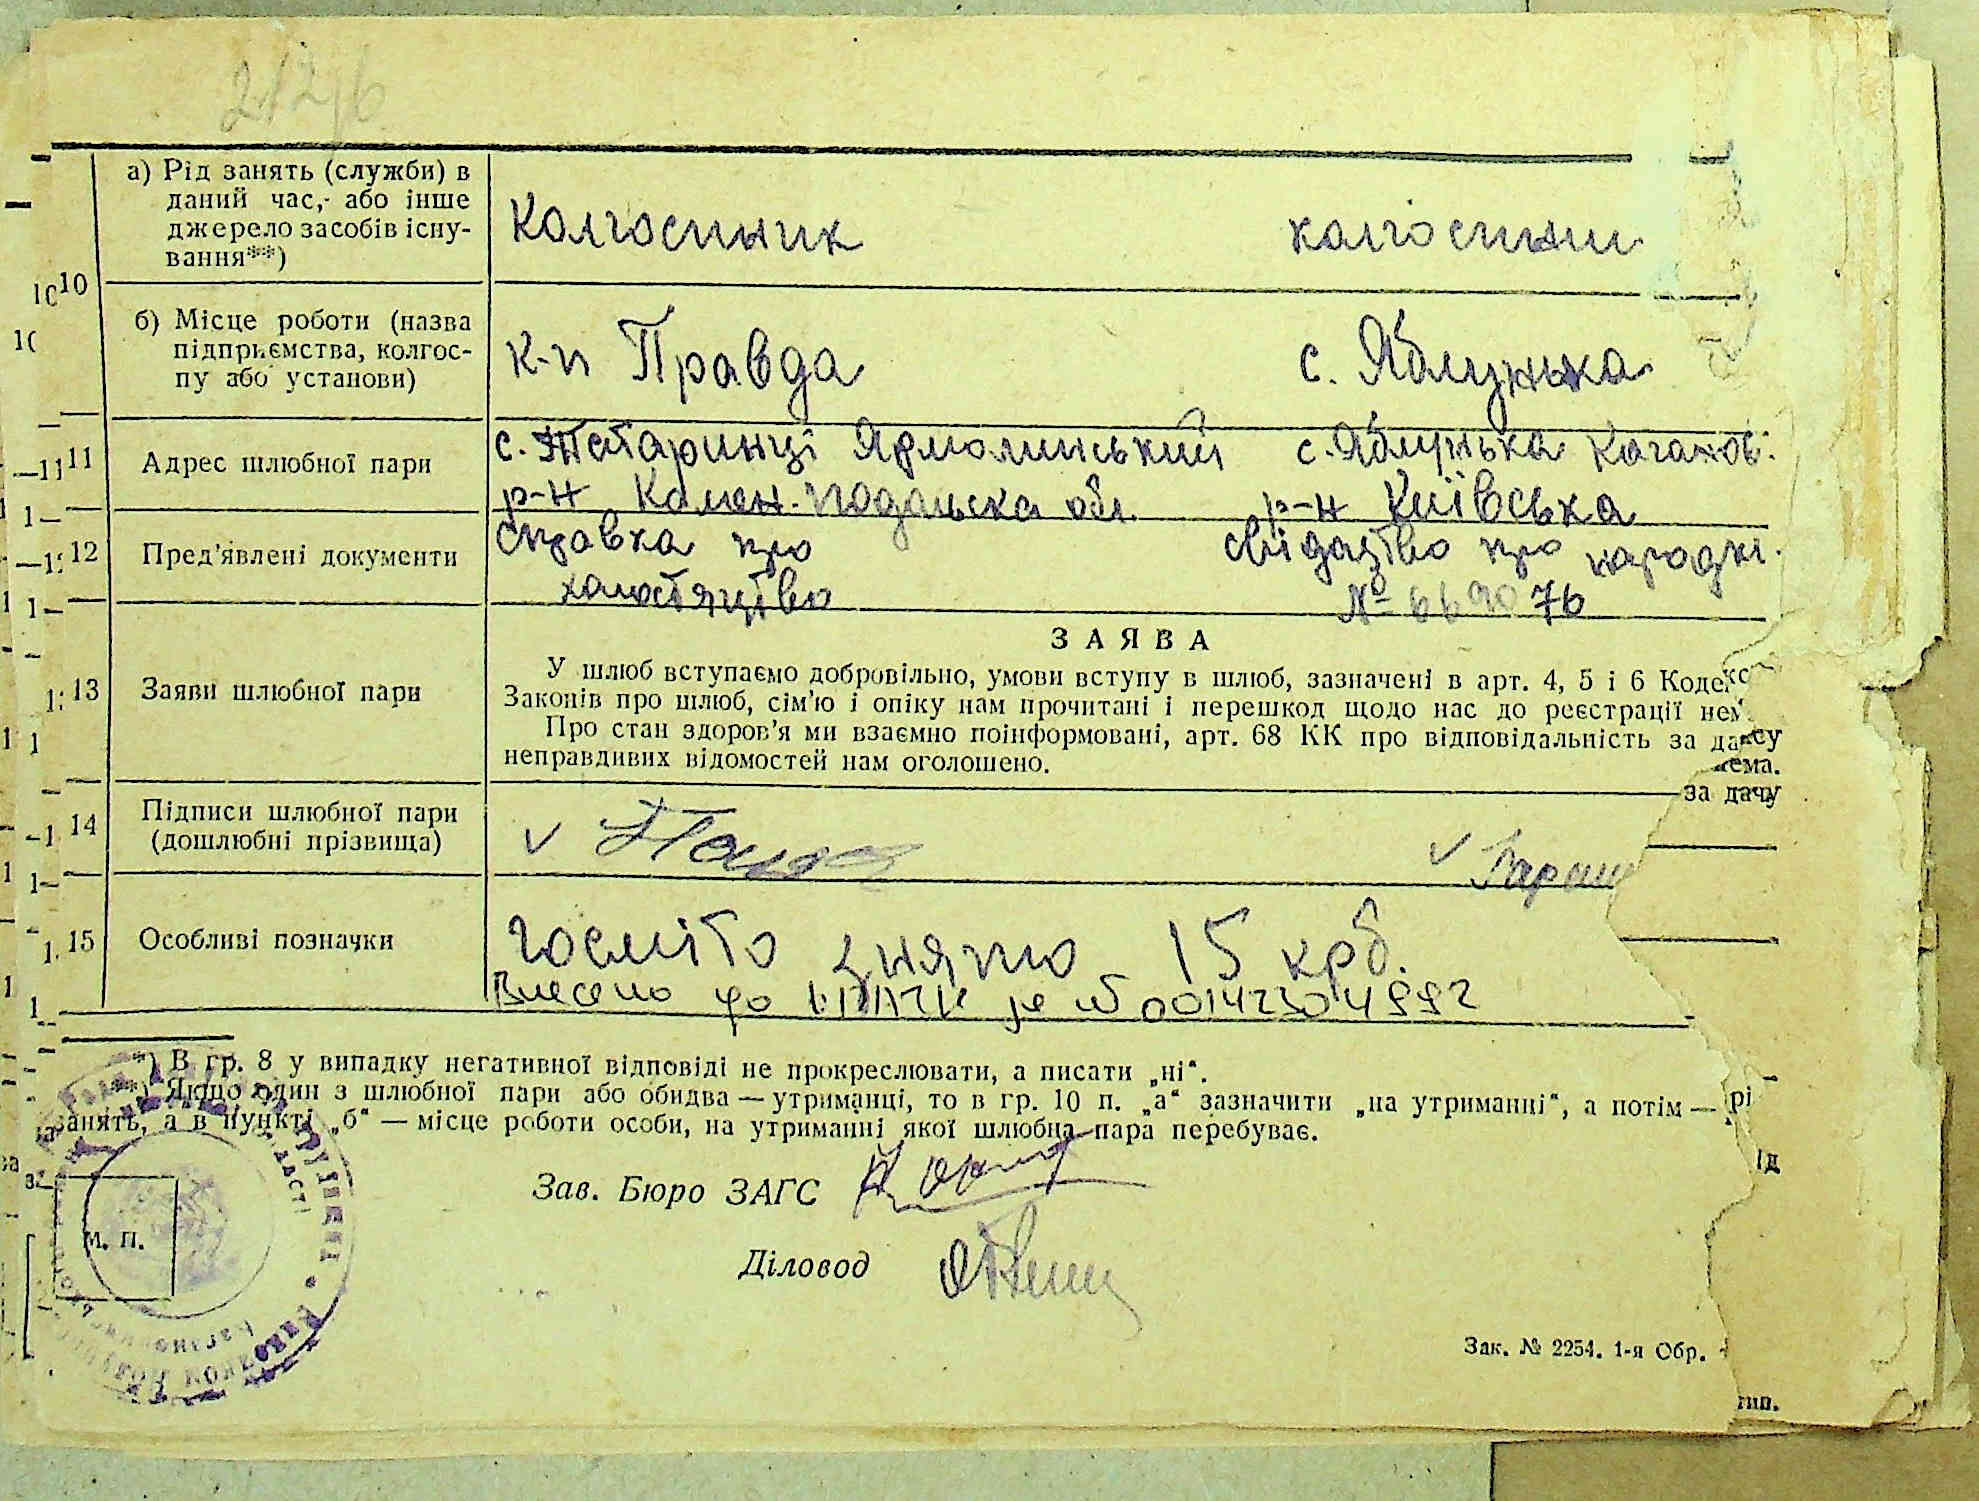 а) Рід занять (служби) в
даний час, або інше
джерело засобів існу-
вання**)
Колгоспник
10
б) Місце роботи (назва
підприємства, колгос-
пу або установи)
к-п Правда
с. Яблунька
11
Адрес шлюбної пари
с. Татаринці Ярмолинський с. Яблунька Каганов.
р-н Камен. Подольска обл. р-н Київська
12
Пред'явлені документи
Справка про
холостяцтво
свідацтво про народж.
№ 669076
ЗАЯВА
13
Заяви шлюбної пари
У шлюб вступаємо добровільно, умови вступу в шлюб, зазначені в арт. 4, 5 і 6
Законів про шлюб, сім'ю і опіку нам прочитані і перешкод щодо нас до реєстрації
Про стан здоров'я ми взаємно поінформовані, арт. 68 КК про відповідальність за
неправдивих відомостей нам оголошено.
за дачу
14
Підписи шлюбної пари
(дошлюбні прізвища)
15
Особливі позначки
госміто знято 15 крб.
Внесено до
00142304992
*) В гр. 8 у випадку негативної відповіді не прокреслювати, а писати „ні“.
**) Якщо один з шлюбної пари або обидва — утриманці, то в гр. 10 п. „а“ зазначити „на утриманні“, а потім — рі
занять, а в пункті „б“ — місце роботи особи, на утриманні якої шлюбна пара перебуває.
Зав. Бюро ЗАГС
М. П.
Діловод
Зак. № 2254. 1-я Обр.
тип.